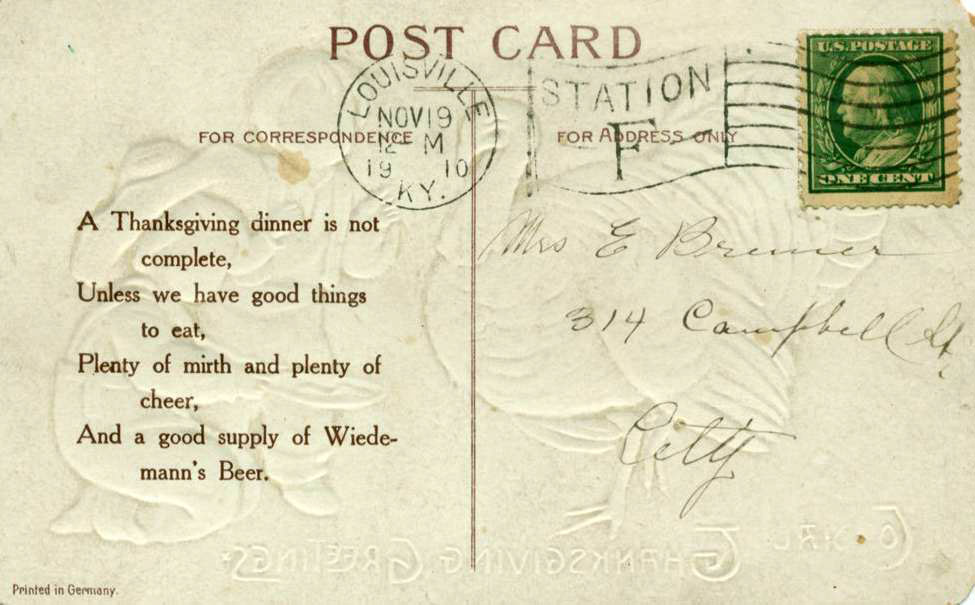 POST CARD
FOR CORRESPONDENCE
FOR ADDRESS ONLY
LOUISVILLE
NOV 19
12 M
1910
KY.
STATION
F
U.S. POSTAGE
ONE CENT
A Thanksgiving dinner is not
complete,
Unless we have good things
to eat,
Plenty of mirth and plenty of
cheer,
And a good supply of Wiede-
mann's Beer.
Mrs E Bremer
314 Campbell St.
City
THANKSGIVING GREETINGS
Printed in Germany.